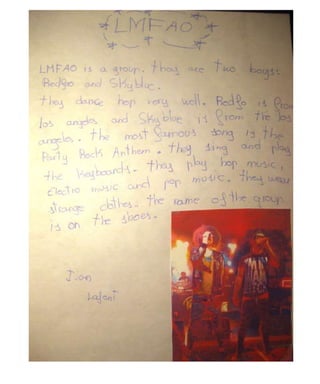 LMFAO
LMFAO is a group. they are two boys:
Redfoo and Skyblue.
they dance hop very well. Redfo is from
los angeles and Skyblue is from the los
angeles. the most famous song is the
Party Rock Anthem. they sing and play
the keyboards. they play hop music,
electro music and pop music. they wear
strange clothes. the name of the group
is on the shoes.